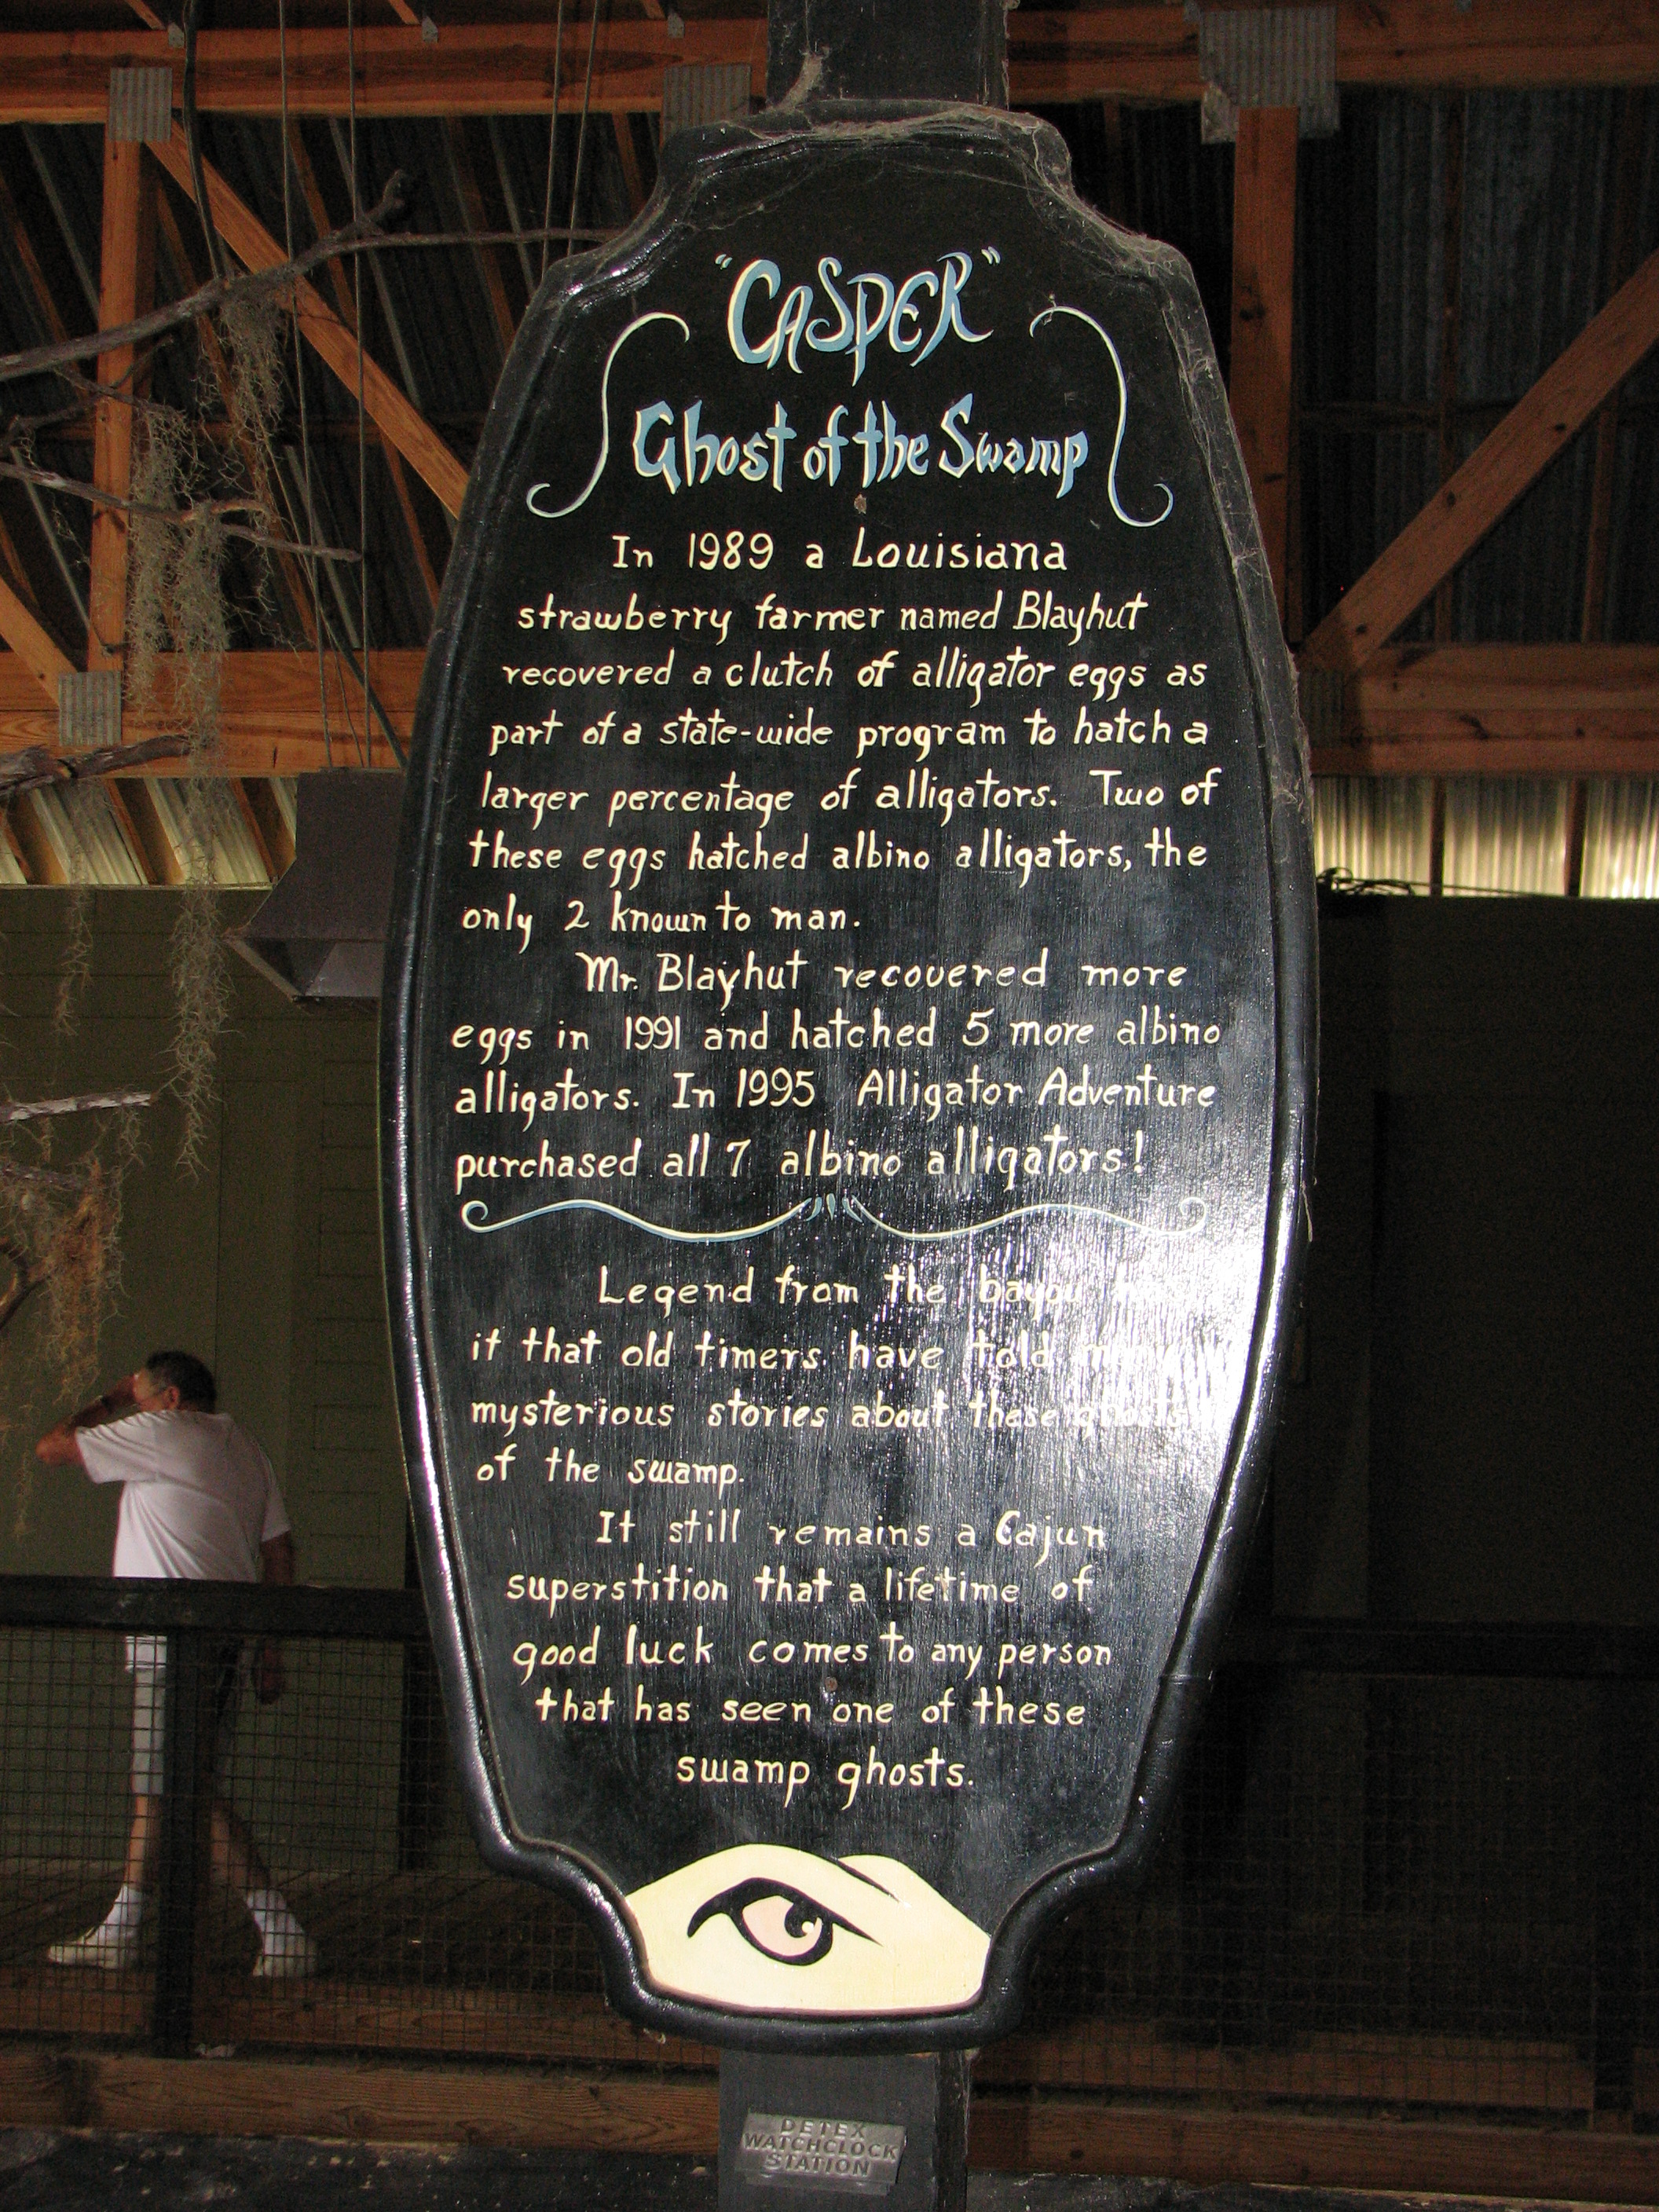 "CASPER"
Ghost of the Swamp
In 1989 a Louisiana
strawberry farmer named Blayhut
recovered a clutch of alligator eggs as
part of a state-wide program to hatch a
larger percentage of alligators. Two of
these eggs hatched albino alligators, the
only 2 known to man.
Mr. Blayhut recovered more
eggs in 1991 and hatched 5 more albino
alligators. In 1995 Alligator Adventure
purchased all 7 albino alligators!
Legend from the bayou
it that old timers have told many
mysterious stories about these ghosts
of the swamp.
It still remains a Cajun
superstition that a lifetime of
good luck comes to any person
that has seen one of these
swamp ghosts.
DETEX
WATCHCLOCK
STATION